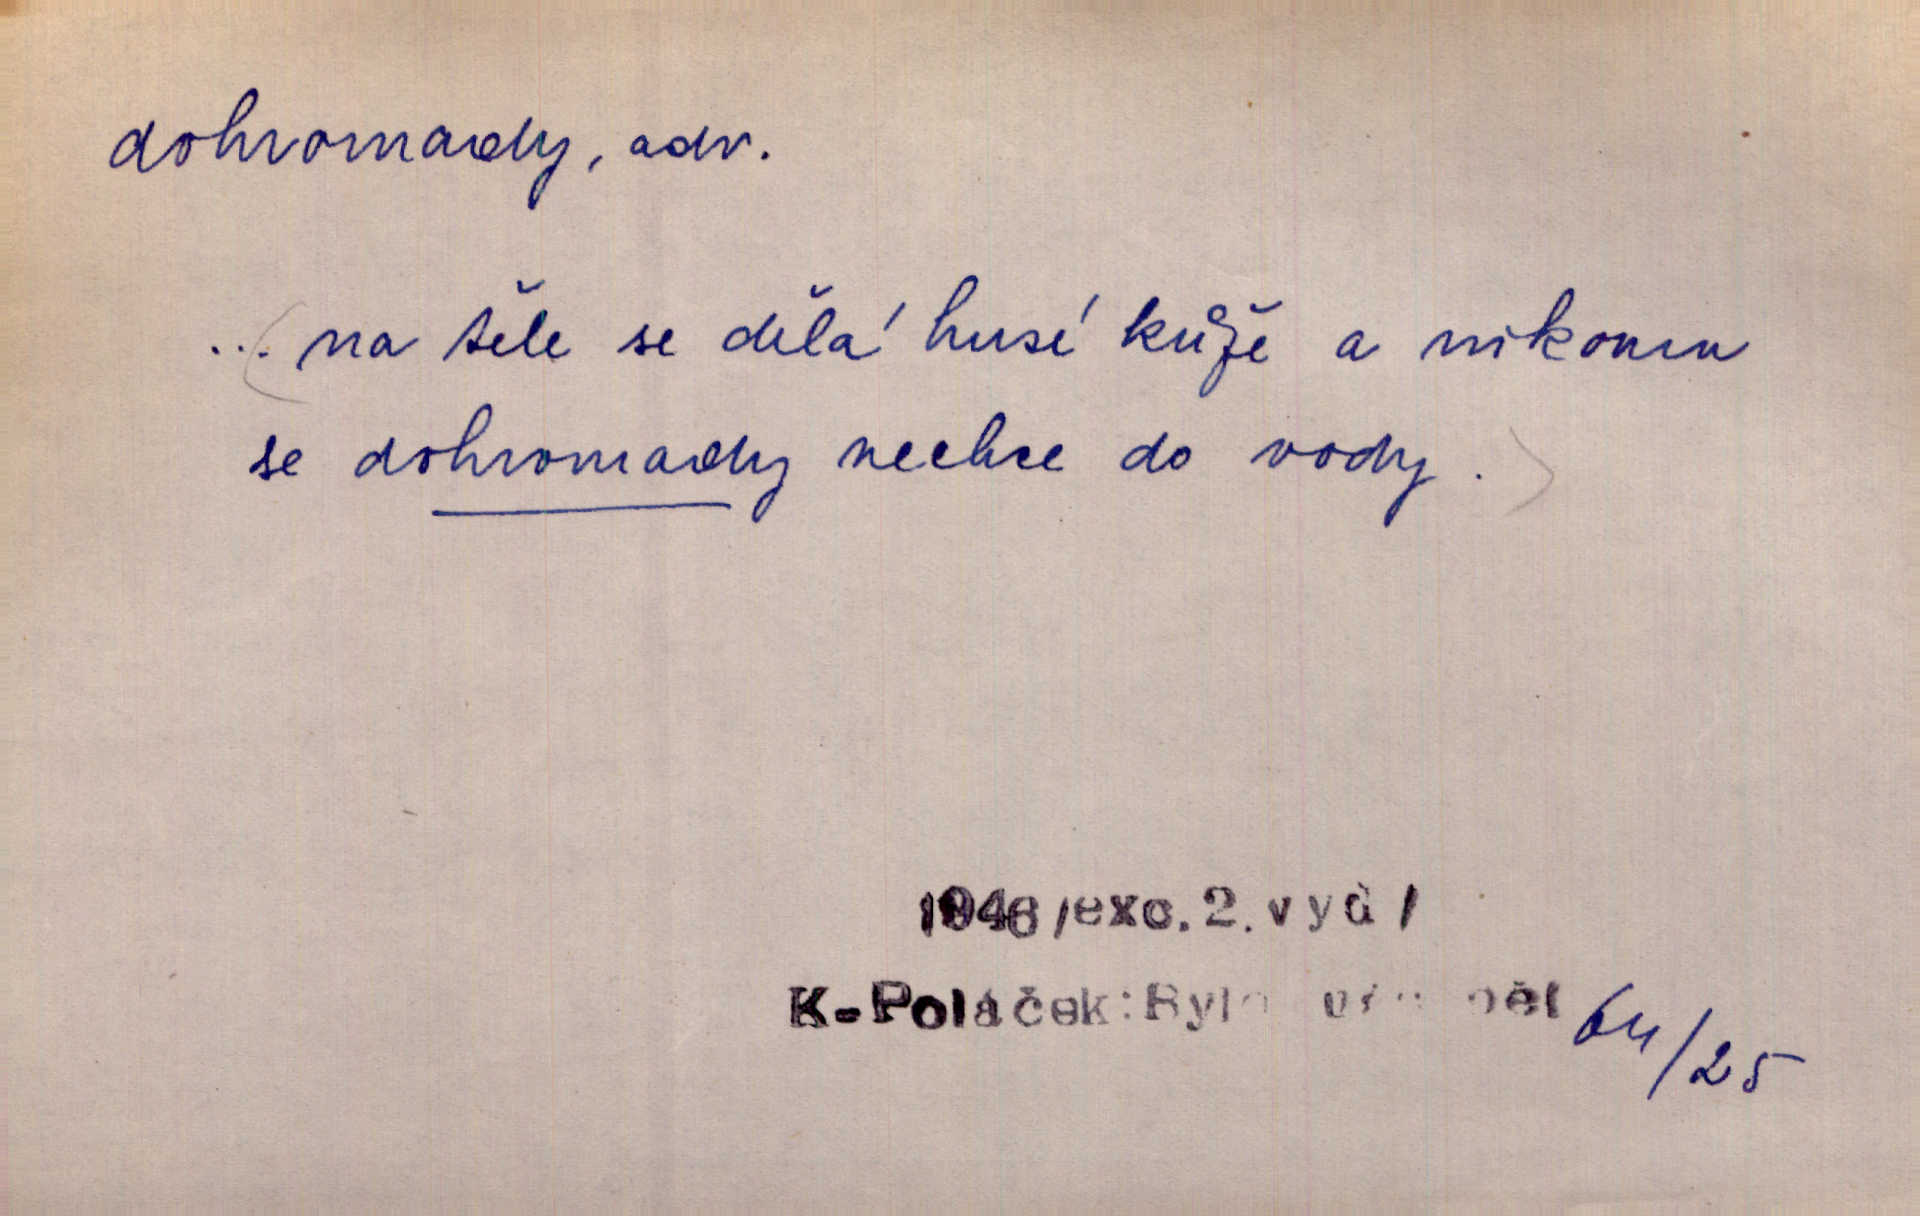 dohromady, adv.
... (na těle se dělá husí kůže a nikomu
se dohromady nechce do vody.)
1946 /exc. 2. vyd /
K-Poláček: Bylo pět
64/25